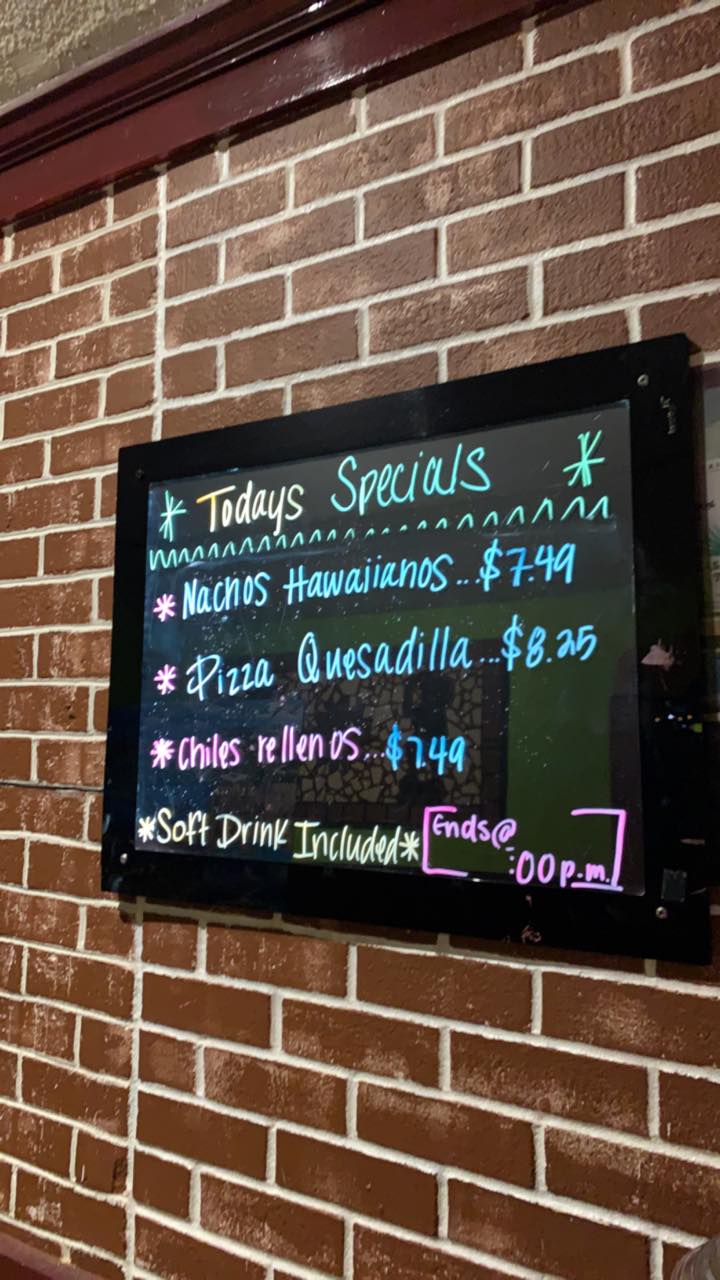 * Todays Specials *
* Nachos Hawaiianos..$7.49
* Pizza Quesadilla...$8.25
* Chiles rellenos...$7.49
*Soft Drink Included*
[Ends@
:00 p.m.]